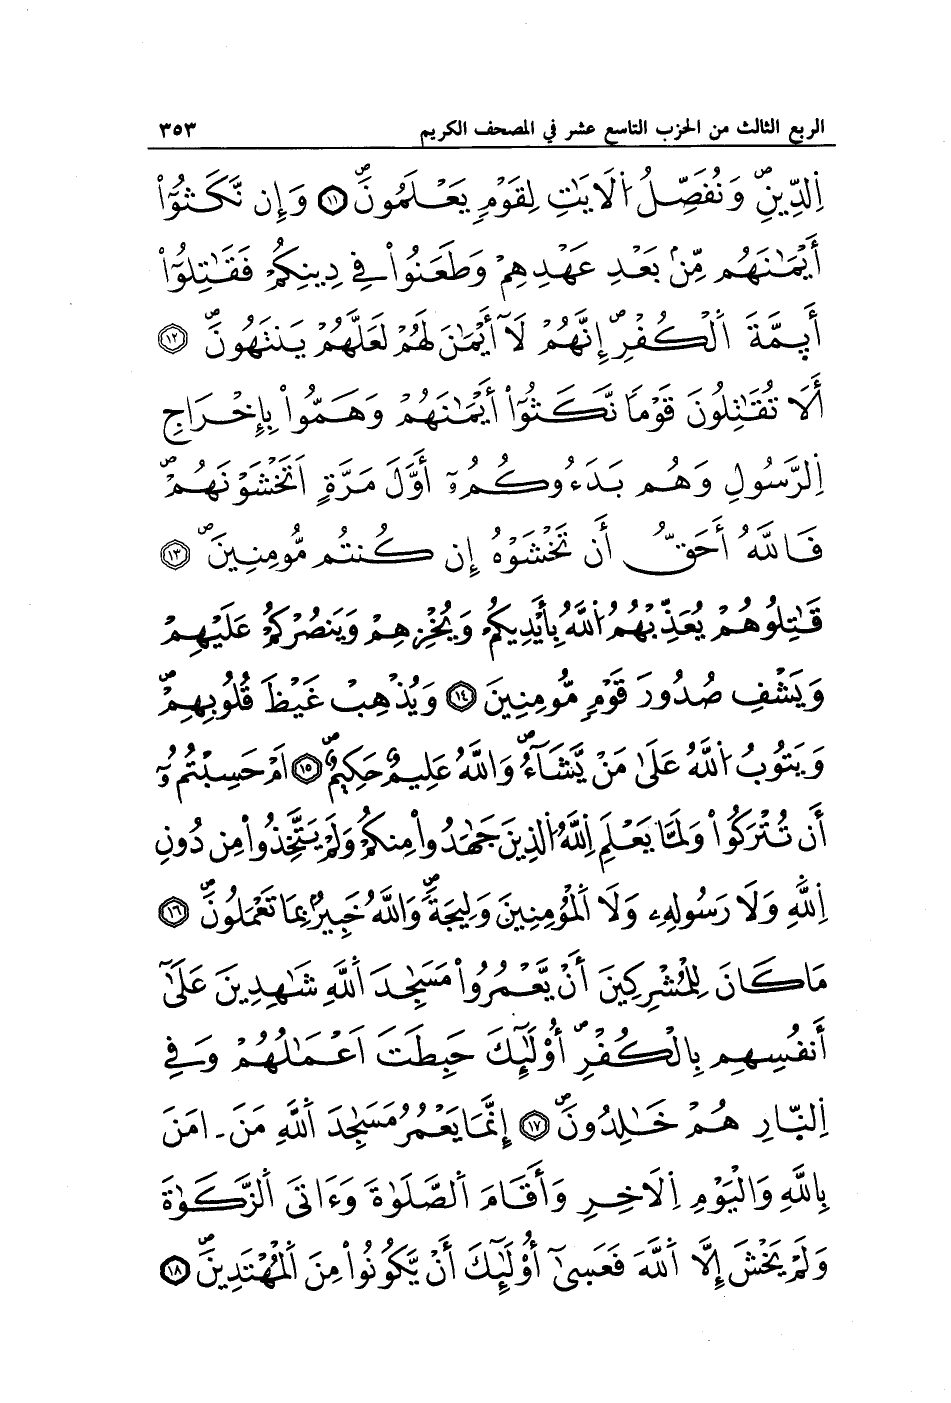 الربع الثالث من الحزب التاسع عشر في المصحف الكريم ٣٥٣
اِ۬لدِّينِۖ وَنُفَصِّلُ اُ۬لَايَٰتِ لِقَوْمٖ يَعْلَمُونَۖ ١١ وَإِن نَّكَثُوٓاْ
أَيْمَٰنَهُم مِّنۢ بَعْدِ عَهْدِهِمْ وَطَعَنُواْ فِي دِينِكُمْ فَقَٰتِلُوٓاْ
أَيِمَّةَ اَ۬لْكُفْرِۖ إِنَّهُمْ لَآ أَيْمَٰنَ لَهُمْ لَعَلَّهُمْ يَنتَهُونَۖ ١٢
أَلَا تُقَٰتِلُونَ قَوْماٗ نَّكَثُوٓاْ أَيْمَٰنَهُمْ وَهَمُّواْ بِإِخْرَاجِ
اِ۬لرَّسُولِ وَهُم بَدَءُوكُمُۥٓ أَوَّلَ مَرَّةٍ اَتَخْشَوْنَهُمْۖ
فَاللَّهُ أَحَقُّ أَن تَخْشَوْهُ إِن كُنتُم مُّومِنِينَۖ ١٣
قَٰتِلُوهُمْ يُعَذِّبْهُمُ اُ۬للَّهُ بِأَيْدِيكُمْ وَيُخْزِهِمْ وَيَنصُرْكُمْ عَلَيْهِمْ
وَيَشْفِ صُدُورَ قَوْمٖ مُّومِنِينَ ١٤ وَيُذْهِبْ غَيْظَ قُلُوبِهِمْۖ
وَيَتُوبُ اُ۬للَّهُ عَلَىٰ مَنْ يَّشَآءُۖ وَاللَّهُ عَلِيمٌ حَكِيمٌۖ ١٥ اَمْ حَسِبْتُمُۥٓ
أَن تُتْرَكُواْ وَلَمَّا يَعْلَمِ اِ۬للَّهُ اُ۬لذِينَ جَٰهَدُواْ مِنكُمْ وَلَمْ يَتَّخِذُواْ مِن دُونِ
اِ۬للَّهِ وَلَا رَسُولِهِۦ وَلَا اَ۬لْمُؤْمِنِينَ وَلِيجَةٗۖ وَاللَّهُ خَبِيرُۢ بِمَا تَعْمَلُونَۖ ١٦
مَا كَانَ لِلْمُشْرِكِينَ أَنْ يَّعْمُرُواْ مَسَٰجِدَ اَ۬للَّهِ شَٰهِدِينَ عَلَىٰٓ
أَنفُسِهِم بِالْكُفْرِۖ أُوْلَٰٓئِكَ حَبِطَتَ اَعْمَٰلُهُمْ وَفِي
اِ۬لنّ۪ارِ هُمْ خَٰلِدُونَۖ ١٧ إِنَّمَا يَعْمُرُ مَسَٰجِدَ اَ۬للَّهِ مَنَ ـ امَنَ
بِاللَّهِ وَالْيَوْمِ اِ۬لَاخِرِ وَأَقَامَ اَ۬لصَّلَوٰةَ وَءَاتَى اَ۬لزَّكَوٰةَ
وَلَمْ يَخْشَ إِلَّا اَ۬للَّهَ فَعَسَىٰٓ أُوْلَٰٓئِكَ أَنْ يَّكُونُواْ مِنَ اَ۬لْمُهْتَدِينَۖ ١٨